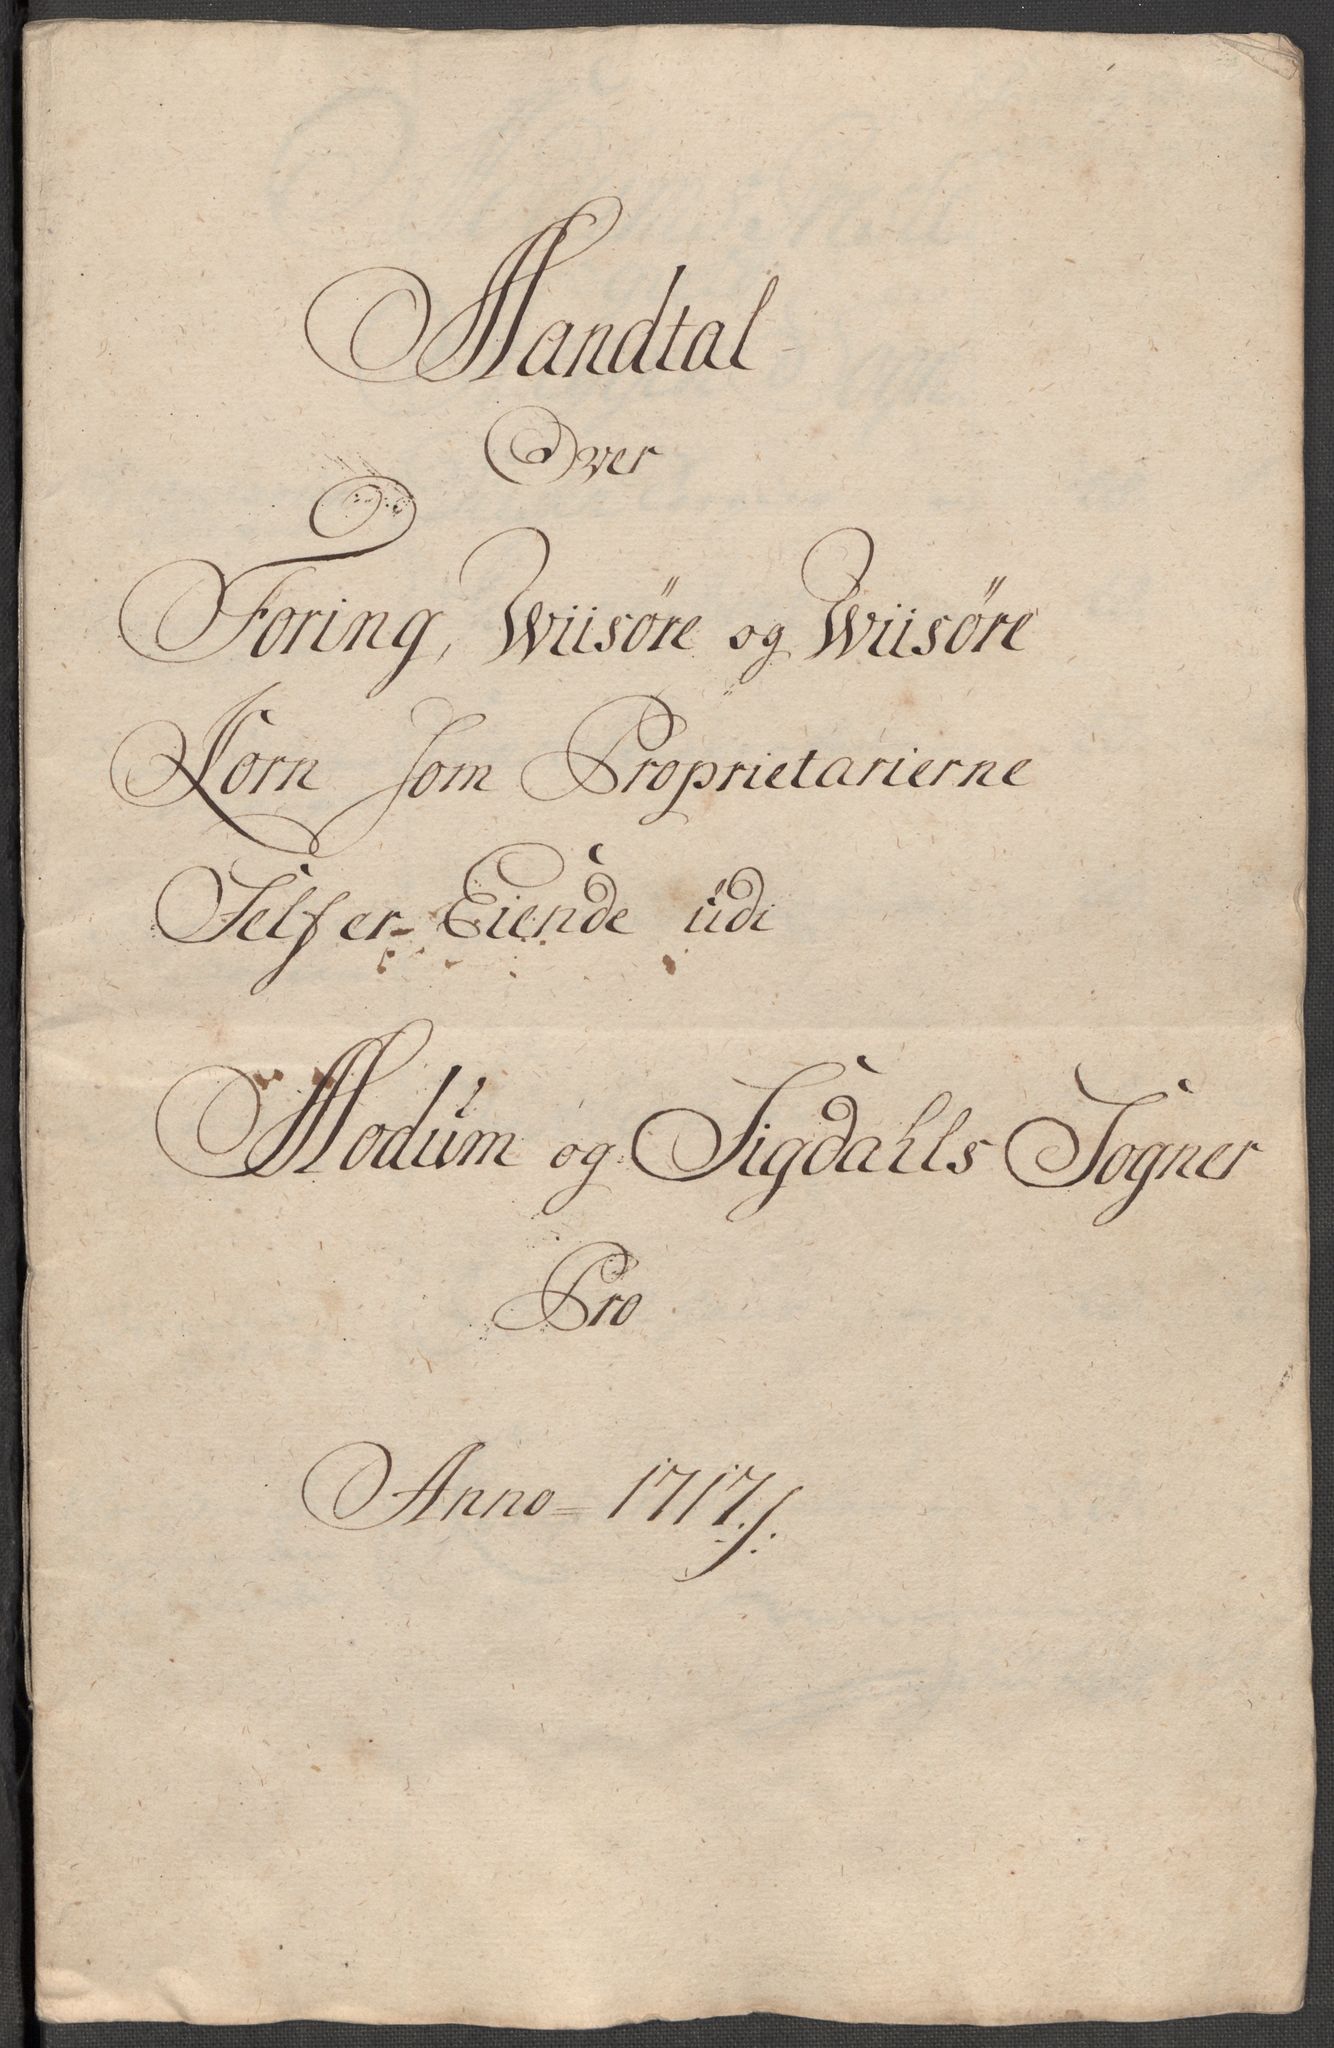 Mandtal
Over
Foring, Wiisøre og Wiisøre
Korn som Proprietarierne
Selfer Eiende udi
Modum og Sigdahls Sogner
Pro
Anno = 1717 /: